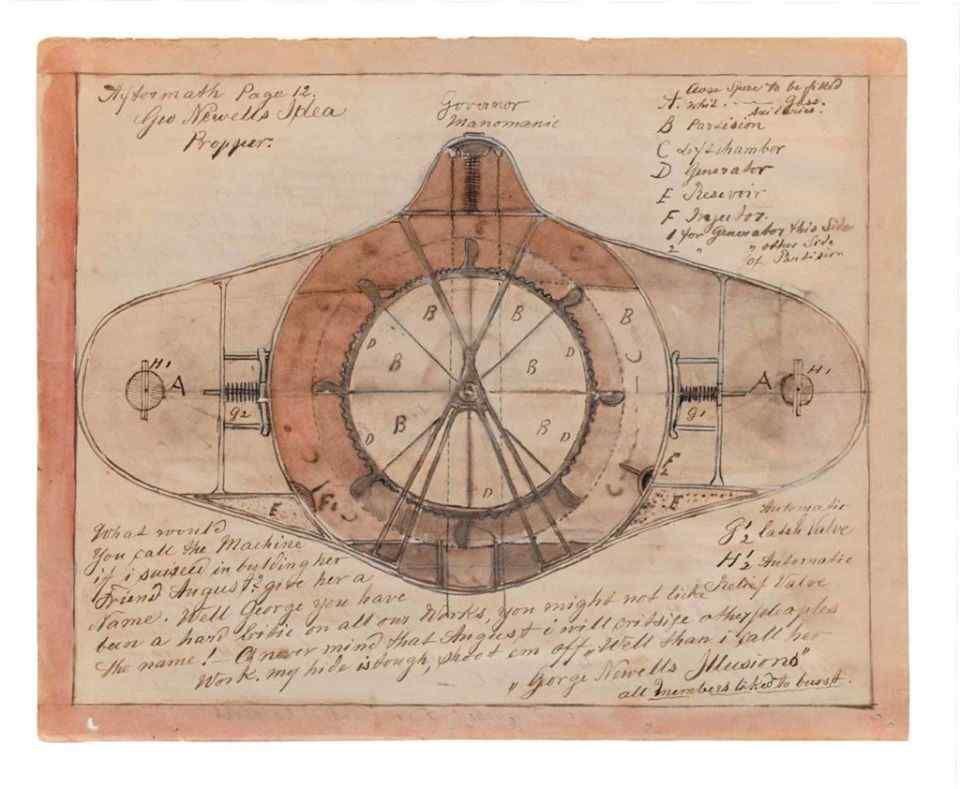 Aftermath Page 12.
Geo Newells Idea
Propper.
Govornor
Manomanic
A. Gose Space to be filled
whit. Gass.
B Partision
C Liftchamber
D Generator
E Resevoir
F Injector.
1 for Generator this Side
2 " " other Side
of Partision
B
B
B
B
B
B
B
C
C
C
D
D
D
D
D
D
H1
A
G2
G1
A
H1
E
E
F 1
F 2
Automatic
G 1/2 latch Valve
H 1/2 Automatic
Relief Valve
What would
You call the Machine
if i succeed in building her
Friend August? give her a
Name. Well George you have
been a hard Critic on all our Works, you might not like
the name! – O never mind that August i will critsise other peaples
Work. my hide is tough, shoot em off, Well than i call her
"Gorge Newells Illusions"
all members liked to busst.